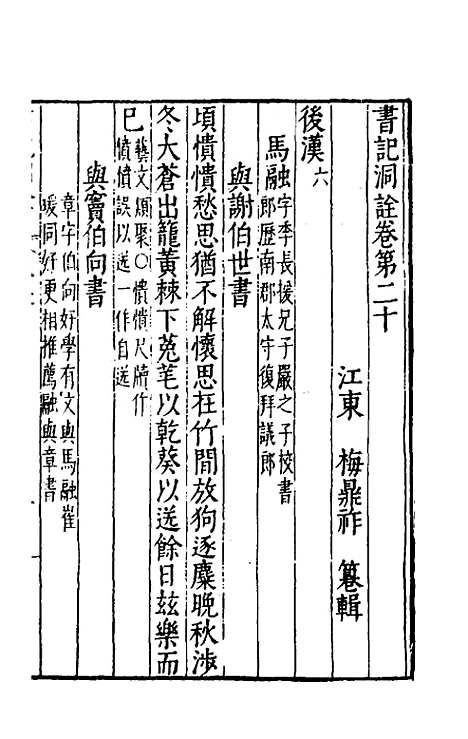 書記洞詮卷第二十
江東 梅鼎祚 纂輯
後漢 六
馬融 字季長援兄子嚴之子校書
郎歷南郡太守復拜議郎
與謝伯世書
頃憒憒愁思猶不解懷思在竹間放狗逐麋晚秋涉
冬大蒼出籠黃棘下菟芼以乾葵以送餘日兹樂而
巳 藝文類聚〇憒憒尺牘作
憤憤誤以送一作自送
與竇伯向書
章字伯向好學有文與馬融崔
瑗同好更相推薦融與章書